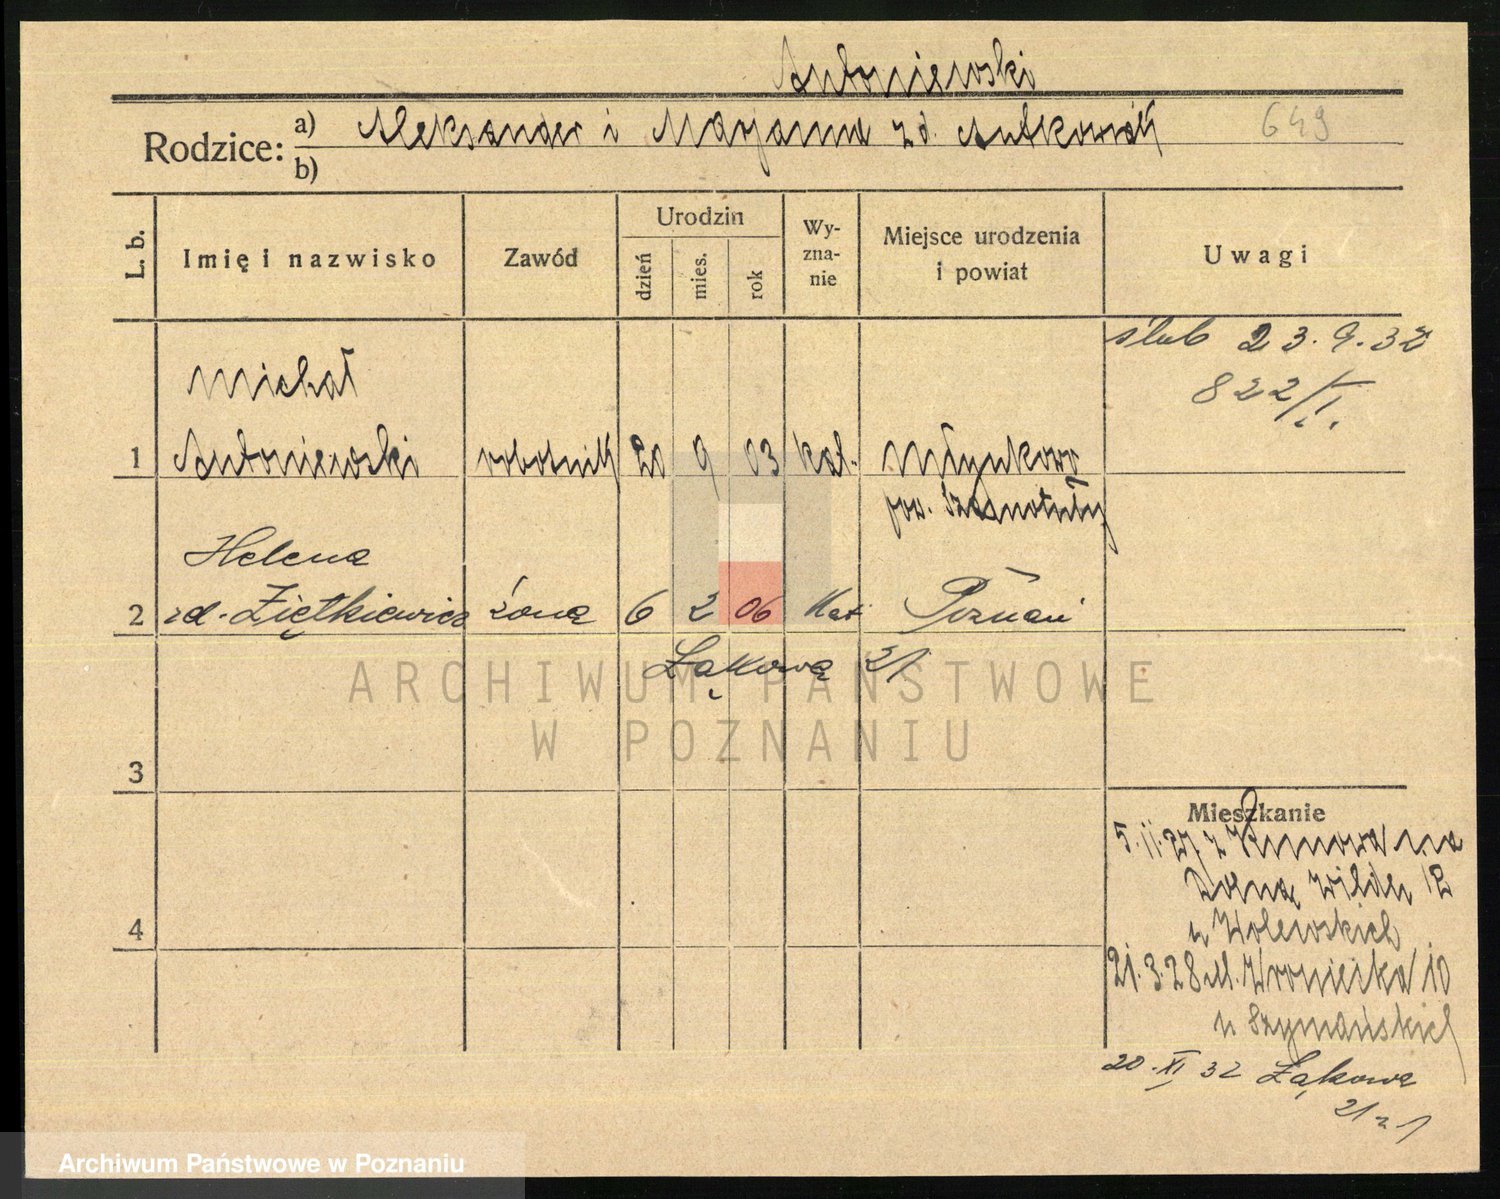 Antoniewski
Rodzice: a) Aleksander i Marjanna zd. Antkowiak 649
b)
L. b. Imię i nazwisko Zawód Urodzin dzień mies. rok Wyznanie Miejsce urodzenia i powiat Uwagi
ślub 23.9.32
822/I.
Michał
1 Antoniewski robotnik 20 9 03 kat. Młynkowo
pow. Szamotuły
Helena
2 zd. Ziętkiewicz żona 6 2 06 Kat Poznań
Łąkowa 21
3
Mieszkanie
5.11.27 z na
Dolna Wilda 12
4
u Wolewskich
21.3.28 M. Wroniecka 10
u Szymańskich
20.XI 32 Łąkowa
21 z 1
ARCHIWUM PAŃSTWOWE
W POZNANIU
Archiwum Państwowe w Poznaniu